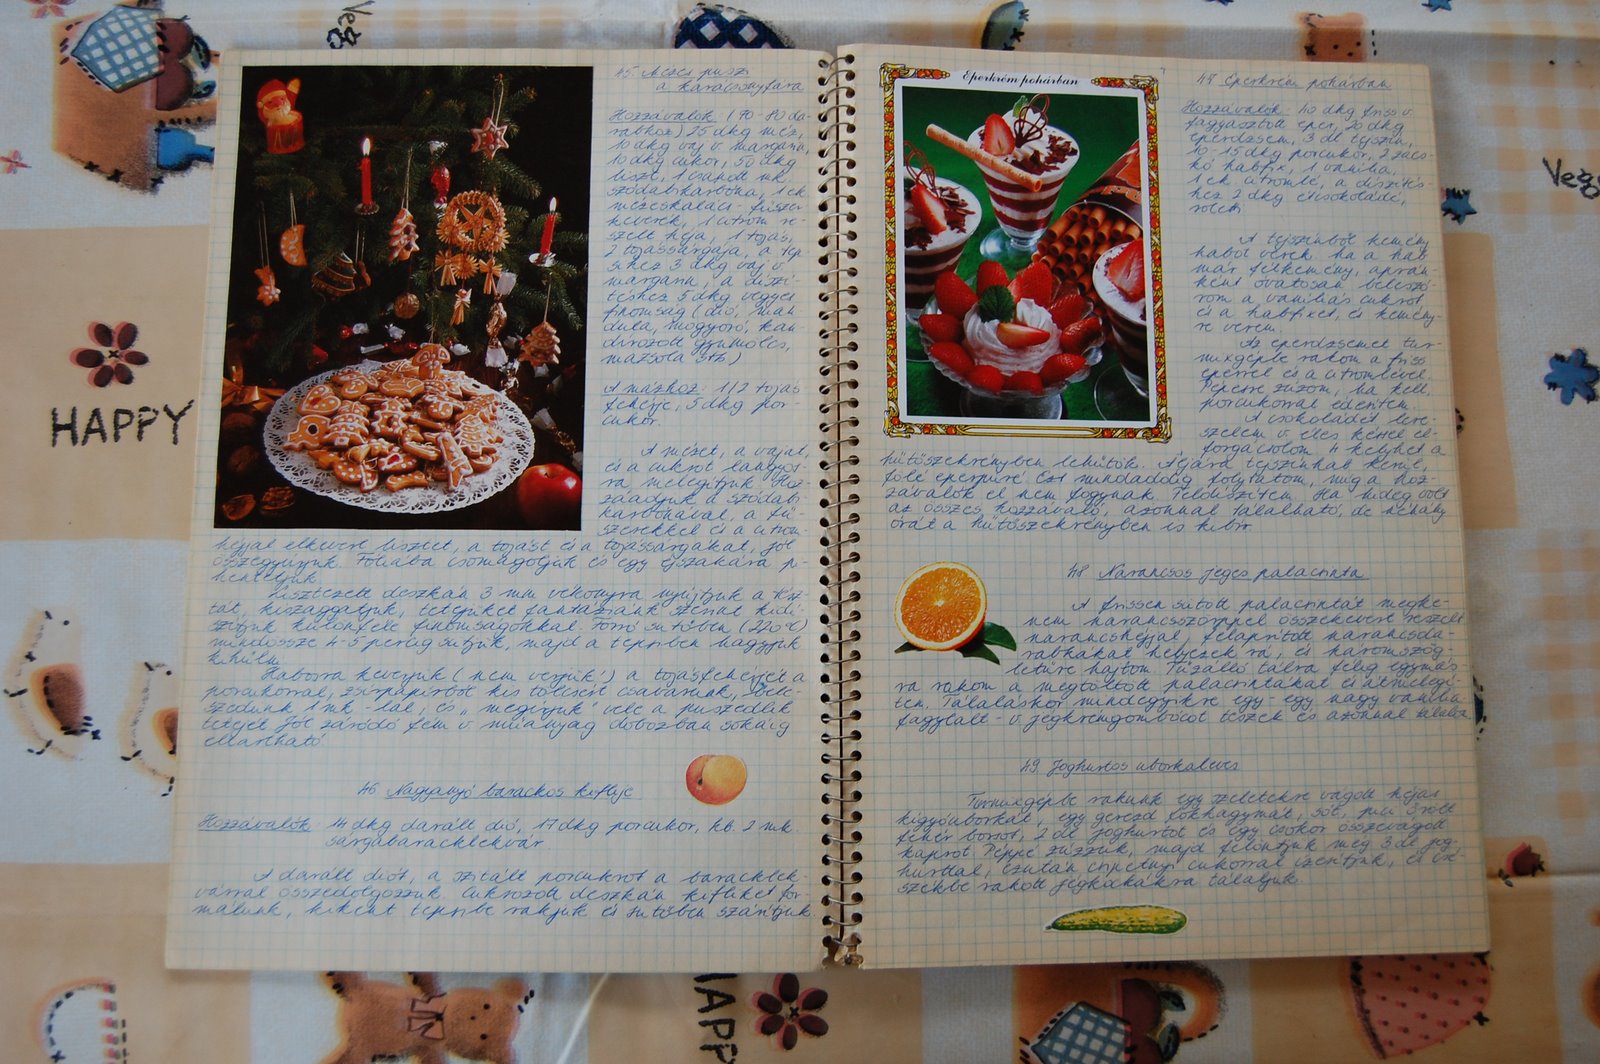 45. Mézes puszi
a karácsonyfára
Hozzávalók (70-80 da-
rabhoz) 25 dkg méz,
10 dkg vaj v. margarin,
10 dkg cukor, 50 dkg
liszt, 1 csapott mk
szódabikarbóna, 1 ek
mézeskalács-fűszer-
keverék, 1 citrom re-
szelt héja, 1 tojás,
2 tojássárgája, a tep-
sihez 3 dkg vaj v.
margarin, a díszí-
téshez 5 dkg vegyes
finomság (dió, man-
dula, mogyoró, kan-
dírozott gyümölcs,
mazsola stb.)
A mázhoz: 1/2 tojás
fehérje, 5 dkg por-
cukor.
A mézet, a vajat,
és a cukrot langyos-
ra melegítjük. Hoz-
záadjuk a szódabi-
karbónával, a fű-
szerekkel és a citrom-
héjjal elkevert lisztet, a tojást és a tojássárgákat, jól
összegyúrjuk. Fóliába csomagoljuk és egy éjszakára pi-
hentetjük.
Lisztezett deszkán 3 mm vékonyra nyújtjuk a tész-
tát, kiszaggatjuk, tetejüket fantáziánk szerint kidí-
szítjük különféle finomságokkal. Forró sütőben (220°C)
mindössze 4-5 percig sütjük, majd a tepsiben hagyjuk
kihűlni.
Habosra keverjük (nem verjük!) a tojásfehérjét a
porcukorral, zsírpapírból kis tölcsért csavarunk, bele-
szedünk 1 mk-lal, és „megírjuk" vele a puszedlik
tetejét. Jól záródó fém v. műanyag dobozban sokáig
eltartható.
46. Nagyanyó barackos kiflije
Hozzávalók: 14 dkg darált dió, 17 dkg porcukor, kb. 2 mk.
sárgabaracklekvár.
A darált diót, a szitált porcukrot a baracklek-
várral összedolgozzuk. Cukrozott deszkán kifliket for-
málunk, kikent tepsibe rakjuk és sütőben szárítjuk.
Eperkrém pohárban
47. Eperkrém pohárban
Hozzávalók: 40 dkg friss v.
fagyasztott eper, 20 dkg
eperdzsem, 3 dl tejszín,
10-15 dkg porcukor, 2 zacs-
kó habfix, 1 vaníliá
1 ek citromlé, a díszítés-
hez 2 dkg étcsokoládé,
roletti
A tejszínből kemény
habot verek, ha a hab
már félkemény, aprán-
ként óvatosan beleszó-
rom a vaníliás cukrot
és a habfixet, és kemény-
re verem.
Az eperdzsemet tur-
mixgépbe rakom a friss
eperrel és a citromlével.
Pépesre zúzom, ha kell,
porcukorral édesítem.
A csokoládét lere-
szelem v. éles késsel el-
forgácsolom. 4 kelyhet a
hűtőszekrényben lehűtök. Aljára tejszínhab kerül,
fölé eperpüré. Ezt mindaddig folytatom, míg a hoz-
závalók el nem fogynak. Feldíszítem. Ha hideg volt
az összes hozzávaló, azonnal tálalható, de néhány
órát a hűtőszekrényben is kibír.
48. Narancsos jeges palacsinta
A frissen sütött palacsintát megke-
nem narancsszörppel összekevert reszelt
narancshéjjal, felaprított narancsda-
rabkákat helyezek rá, és háromszög-
letűre hajtom. Tűzálló tálra félig egymás-
ra rakom a megtöltött palacsintákat és átmelegí-
tem. Tálaláskor mindegyikre egy-egy nagy vanília
fagylalt- v. jégkrémgombócot teszek és azonnal tálalom.
49. Joghurtos uborkaleves
Turmixgépbe rakunk egy szeletekre vágott héjas
kígyóuborkát, egy gerezd fokhagymát, sót, pici őrölt
fehér borsot, 2 dl joghurtot és egy csokor összevágott
kaprot. Péppé zúzzuk, majd felöntjük még 3 dl jog-
hurttal, ezután csipetnyi cukorral ízesítjük, és cse-
székbe rakott jégkockákra tálaljuk.
HAPPY
HAPP
Veg
Veg